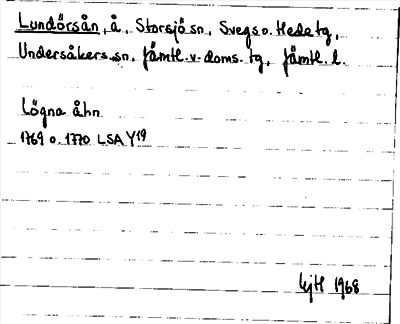 Lundörsån, å, Storsjö sn, Svegs o. Hede tg,
Undersåkers sn, Jämtl. v. doms. tg, Jämtl. l.
Lögna åhn
1769 o. 1770 LSA Y19
1968